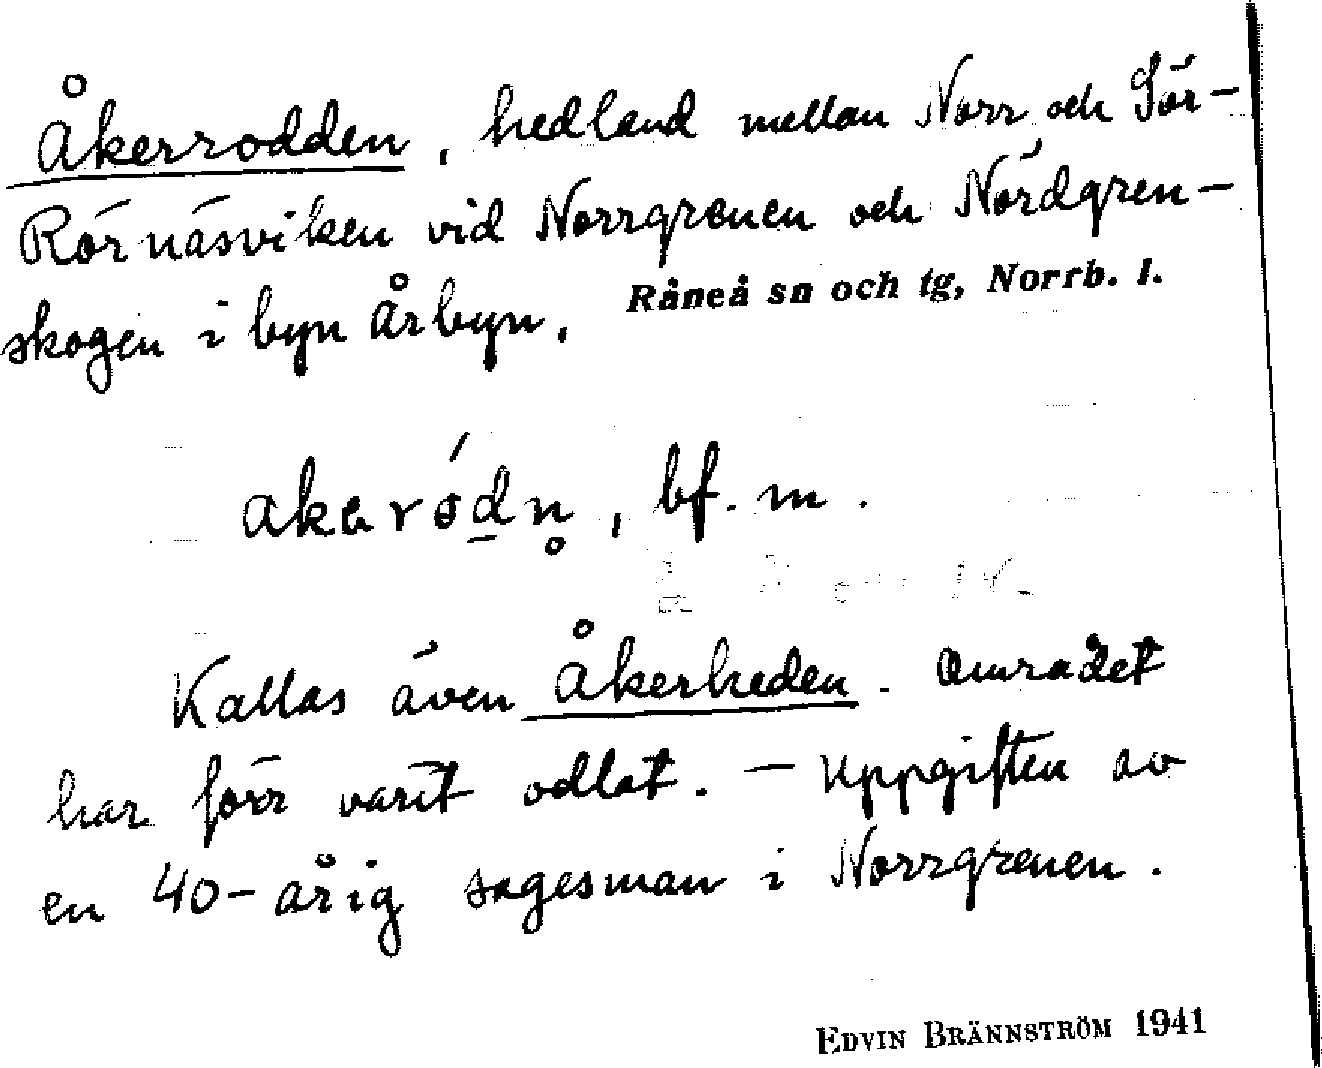 Åkerrodden, hedland mellan Norr och Sör-
Rörnäsviken vid Norrgrenen och Nördgren-
skogen i byn Årbyn. Råneå sn och tg, Norrb. l.
akɐród̲n̥, bf. m.
Kallas även Åkerheden. Området
har förr varit odlat. — Uppgiften av
en 40-årig sagesman i Norrgrenen.
EDVIN BRÄNNSTRÖM 1941